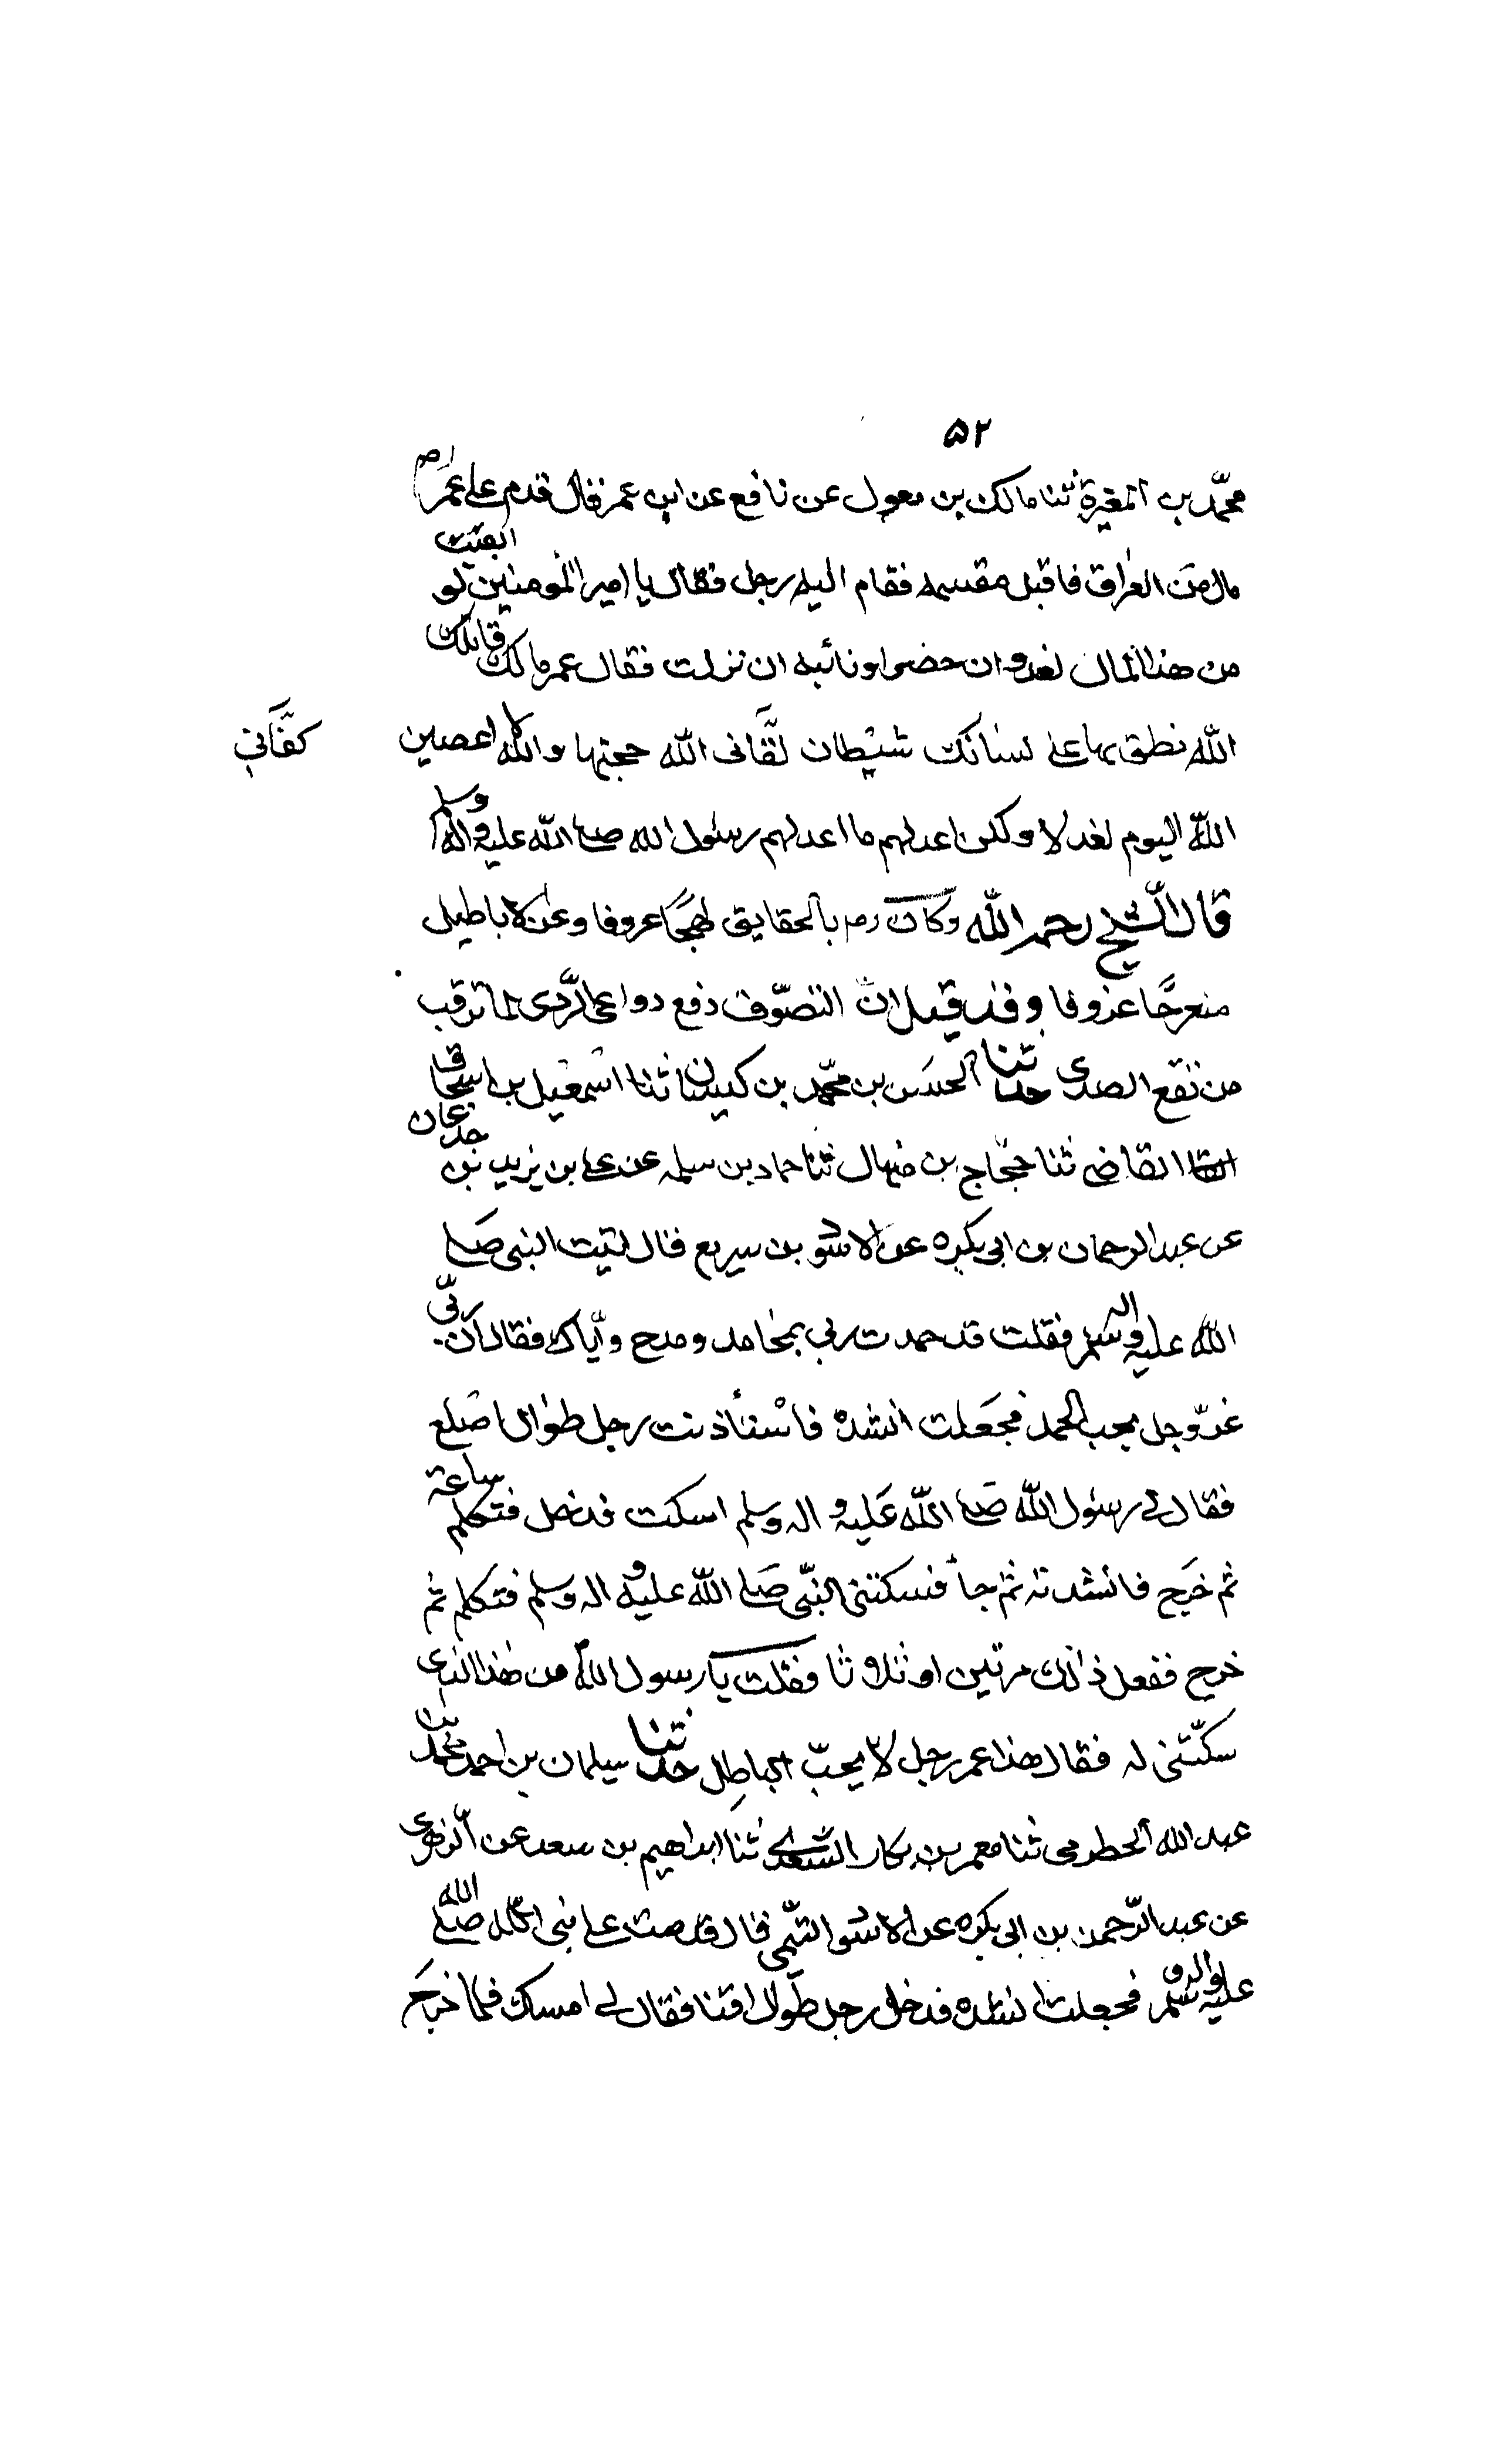 ۵۲
محمّد بن المغيرة ثنا مالك بن معول عن نافع عن ابن عمر قال قدم على عمر رض
مال من العراق فاقبل مقسمه فقام اليه رجل فقال يا امير المومنين لو ابقيت
من هذا المال لعدو ان حضر او نائبه ان نزلت فقال عمر مالك قاتلك
الله نطق بها على لسانك شيطان لقّانى الله حجتها والله لا اعصين
كفّانى
الله اليوم لغد لا ولكن اعد لهم ما اعد لهم رسول الله صلى الله عليه واله وسلم
قال الشيخ رحمه الله وكان رضه بالحقايق لهجًا عروفا وعن الاباطيل
منعرجًا عزوفا وقد قيل ان التصوّف دفع دواعى الرّدى بما ترقب
من نقع الصدى حدثنا الحسن بن محمّد بن كيسان ثنا اسمعيل بن اسحاق
القاضى ثنا حجّاج بن منهال ثنا حماد بن سلمه عن على بن يزيد بن جدعان
عن عبد الرحمان بن ابى بكره عن الاسود بن سريع قال اتيت النبى صلى
الله عليه واله وسلم فقلت قد حمدت ربى بمحامد ومدح وايّاك فقال ان ربّى
عزّوجل يحب الحمد فجعلت انشده فاستأذنت رجل طوال اصلع
فقال لى رسول الله صلى الله عليه و اله وسلم اسكت فدخل فتكلم ساعة
ثم خرج فانشدته ثم جأ فسكتنى النبّى صلى الله عليه و اله وسلم فتكلم ثم
خرج ففعل ذلك مرتين او ثلاثا فقلت يا رسول الله من هذا الذى
سكّتنى له فقال هذا عمر رجل لا يحبّ الباطل حدثنا سليمان بن احمد محمّد بن
عبد الله الحطرمى ثنا معمر بن بكار السّعدى ثنا ابراهيم بن سعد عن الزهرى
عن عبد الرّحمن بن ابى بكره عن الاسود التّيمى قال قدمت على نبى الله صلى الله
عليه واله وسلم فجعلت انشده فدخل رجل طوال اقنا فقال لى امسك فلما خرج